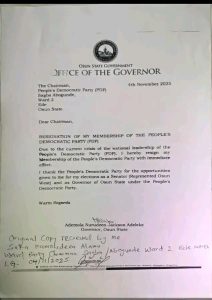 OSUN STATE GOVERNMENT
OFFICE OF THE GOVERNOR
4th November 2025
The Chairman,
People's Democratic Party (PDP)
Sagba Abogunde,
Ward 2
Ede
Osun State.
Dear Chairman,
RESIGNATION OF MY MEMBERSHIP OF THE PEOPLE'S
DEMOCRATIC PARTY (PDP)
Due to the current crisis of the national leadership of the
People's Democratic Party (PDP), I hereby resign my
Membership of the People's Democratic Party with immediate
effect.
I thank the People's Democratic Party for the opportunities
given to me for my elections as a Senator (Represented Osun
West) and as Governor of Osun State under the People's
Democratic Party.
Warm Regards
Ademola Nurudeen Jackson Adeleke
Governor, Osun State
Original Copy received by me
Ward Party Chairman Sagba/Abogunde Ward 2 Ede North
LG. 04/11/2025